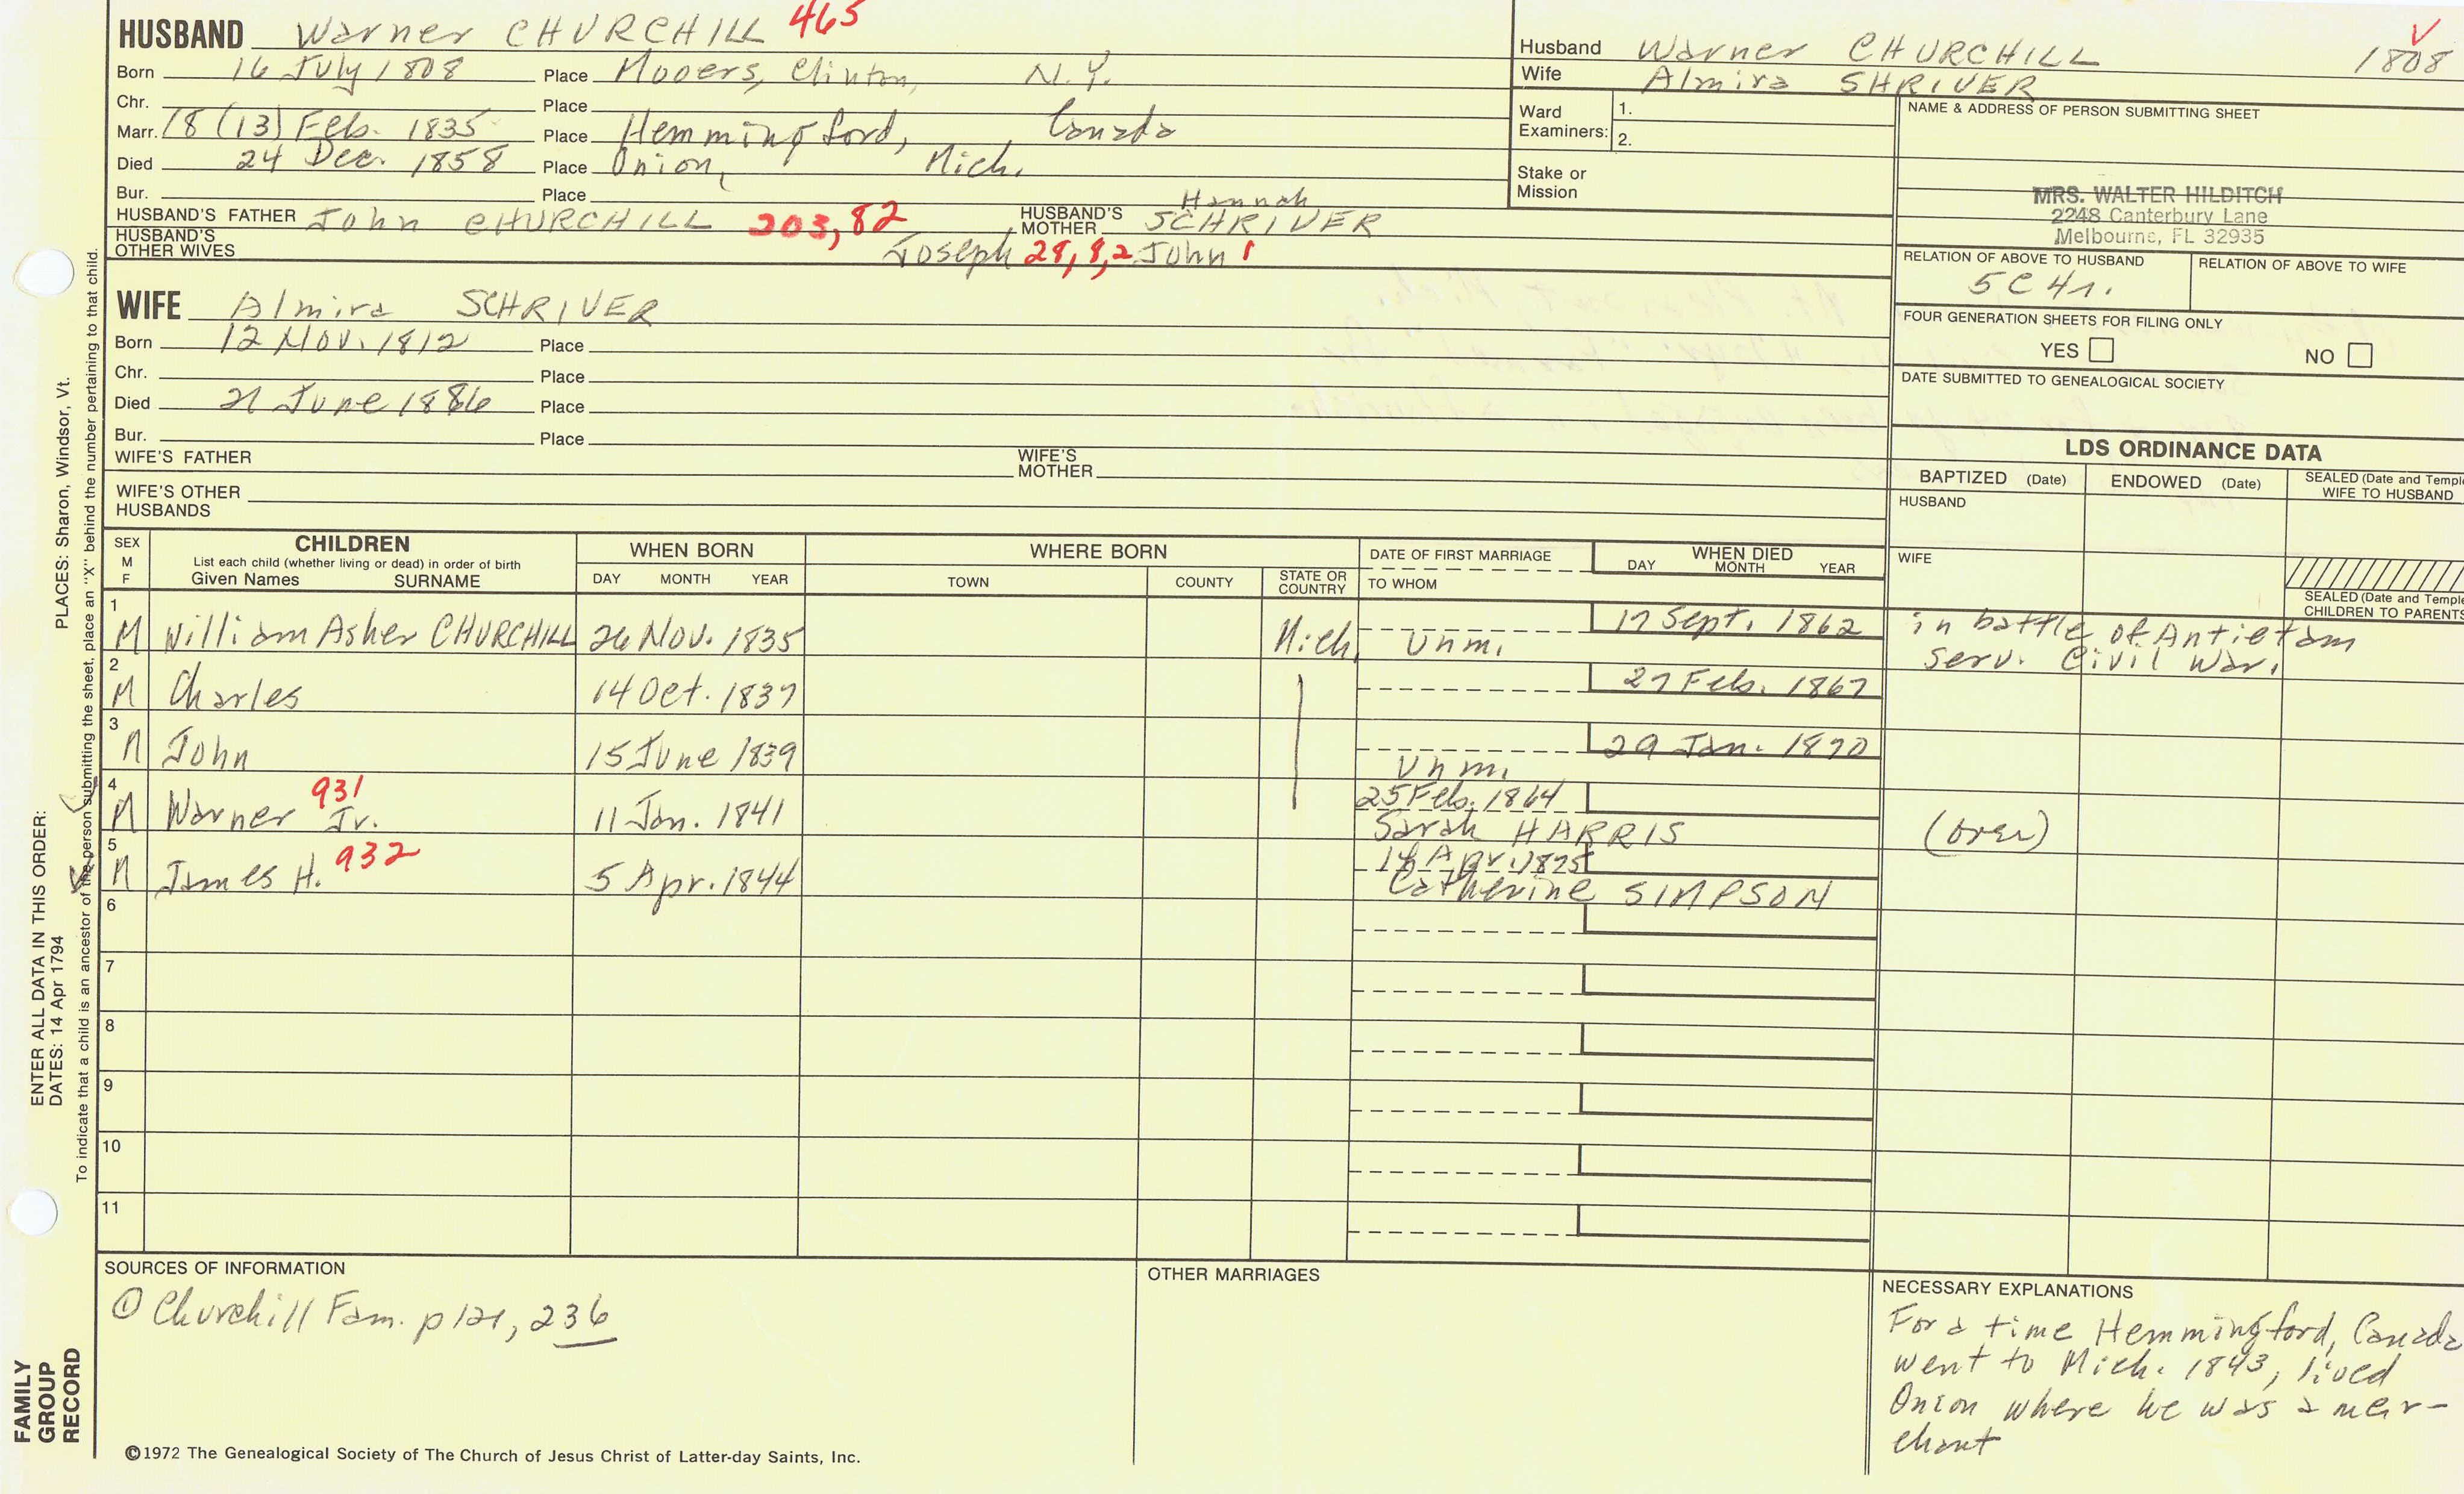 HUSBAND Warner CHURCHILL 465
Born 16 July 1808 Place Mooers, Clinton, N.Y.
Chr. Place
Marr. 18 (13) Feb. 1835 Place Hemmingford, Canada
Died 24 Dec. 1858 Place Union, Mich.
Bur. Place
HUSBAND'S FATHER John CHURCHILL 203, 82 HUSBAND'S MOTHER Hannah SCHRIVER
HUSBAND'S OTHER WIVES Joseph 28, 8, 2 John 1
WIFE Almira SCHRIVER
Born 12 Nov. 1812 Place
Chr. Place
Died 21 June 1886 Place
Bur. Place
WIFE'S FATHER WIFE'S MOTHER
WIFE'S OTHER HUSBANDS
Husband Warner CHURCHILL 1808
Wife Almira SHRIVER
Ward Examiners: 1.
2.
Stake or Mission
NAME & ADDRESS OF PERSON SUBMITTING SHEET
MRS. WALTER HILDITCH
2248 Canterbury Lane
Melbourne, FL 32935
RELATION OF ABOVE TO HUSBAND RELATION OF ABOVE TO WIFE
5C4r.
FOUR GENERATION SHEETS FOR FILING ONLY
YES NO
DATE SUBMITTED TO GENEALOGICAL SOCIETY
LDS ORDINANCE DATA
BAPTIZED (Date) ENDOWED (Date) SEALED (Date and Temple
WIFE TO HUSBAND
HUSBAND
WIFE
SEALED (Date and Temple
CHILDREN TO PARENTS
SEX M F CHILDREN WHEN BORN WHERE BORN DATE OF FIRST MARRIAGE WHEN DIED
List each child (whether living or dead) in order of birth
Given Names SURNAME DAY MONTH YEAR TOWN COUNTY STATE OR COUNTRY TO WHOM DAY MONTH YEAR
1 M William Asher CHURCHILL 26 Nov. 1835 Mich. Unm. 17 Sept. 1862 in battle of Antietam
serv. Civil War.
2 M Charles 14 Oct. 1837 27 Feb. 1867
3 M John 15 June 1839 Unm. 29 Jan. 1870
4 M Warner Jr. 931 11 Jan. 1841 25 Feb. 1864
Sarah HARRIS (over)
5 M James H. 932 5 Apr. 1844 Apr. 1825
Catherine SIMPSON
6
7
8
9
10
11
SOURCES OF INFORMATION
① Churchill Fam. p 121, 236
OTHER MARRIAGES
NECESSARY EXPLANATIONS
For a time Hemmingford, Canada
went to Mich. 1843, lived
Union where he was a mer-
chant
©1972 The Genealogical Society of The Church of Jesus Christ of Latter-day Saints, Inc.
FAMILY
GROUP
RECORD
ENTER ALL DATA IN THIS ORDER:
DATES: 14 Apr 1794 PLACES: Sharon, Windsor, Vt.
To indicate that a child is an ancestor of the person submitting the sheet, place an "X" behind the number pertaining to that child.